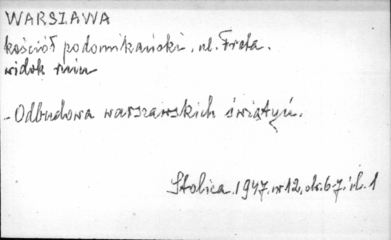 WARSZAWA
kościół podominikański, ul. Freta.
widok ruin
- Odbudowa warszawskich świątyń.
Stolica. 1947. nr 12, str. 6-7. il. 1